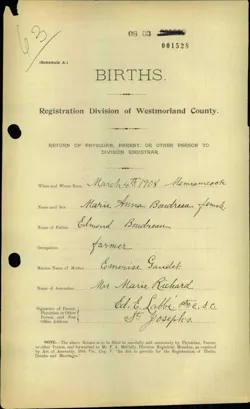 63
08 03
001528
(Schedule A.)
BIRTHS.
Registration Division of Westmorland County.
RETURN OF PHYSICIAN, PARENT, OR OTHER PERSON TO
DIVISION REGISTRAR.
When and Where Born, March 4th 1908 Memramcook
Name and Sex Marie Anna Boudreau female
Name of Father Edmond Boudreau
Occupation farmer
Maiden Name of Mother Emerise Gaudet
Name of Accoucheur Mrs Marie Richard
Signature of Parent,
Physician or Other
Person, and Post
Office Address
Ed. E. Labbé c.s.c.
St Josephs
NOTE.—The above Return is to be filled in carefully and accurately by Physician, Parent
or other Person, and forwarded to Division Registrar, Moncton, as required
by Act of Assembly, Cap. "An Act to provide for the Registration of Births,
Deaths and Marriages."